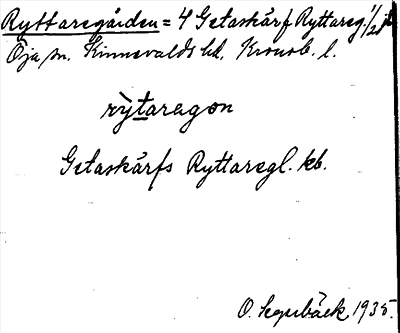 Ryttaregården = 4 Getaskärf Ryttareg. 1/2
Öja sn. Kinnevalds hd, Kronob. l.
rỳtaragon
Getaskärfs Ryttaregl. kb.
O. Segubäck 1935.